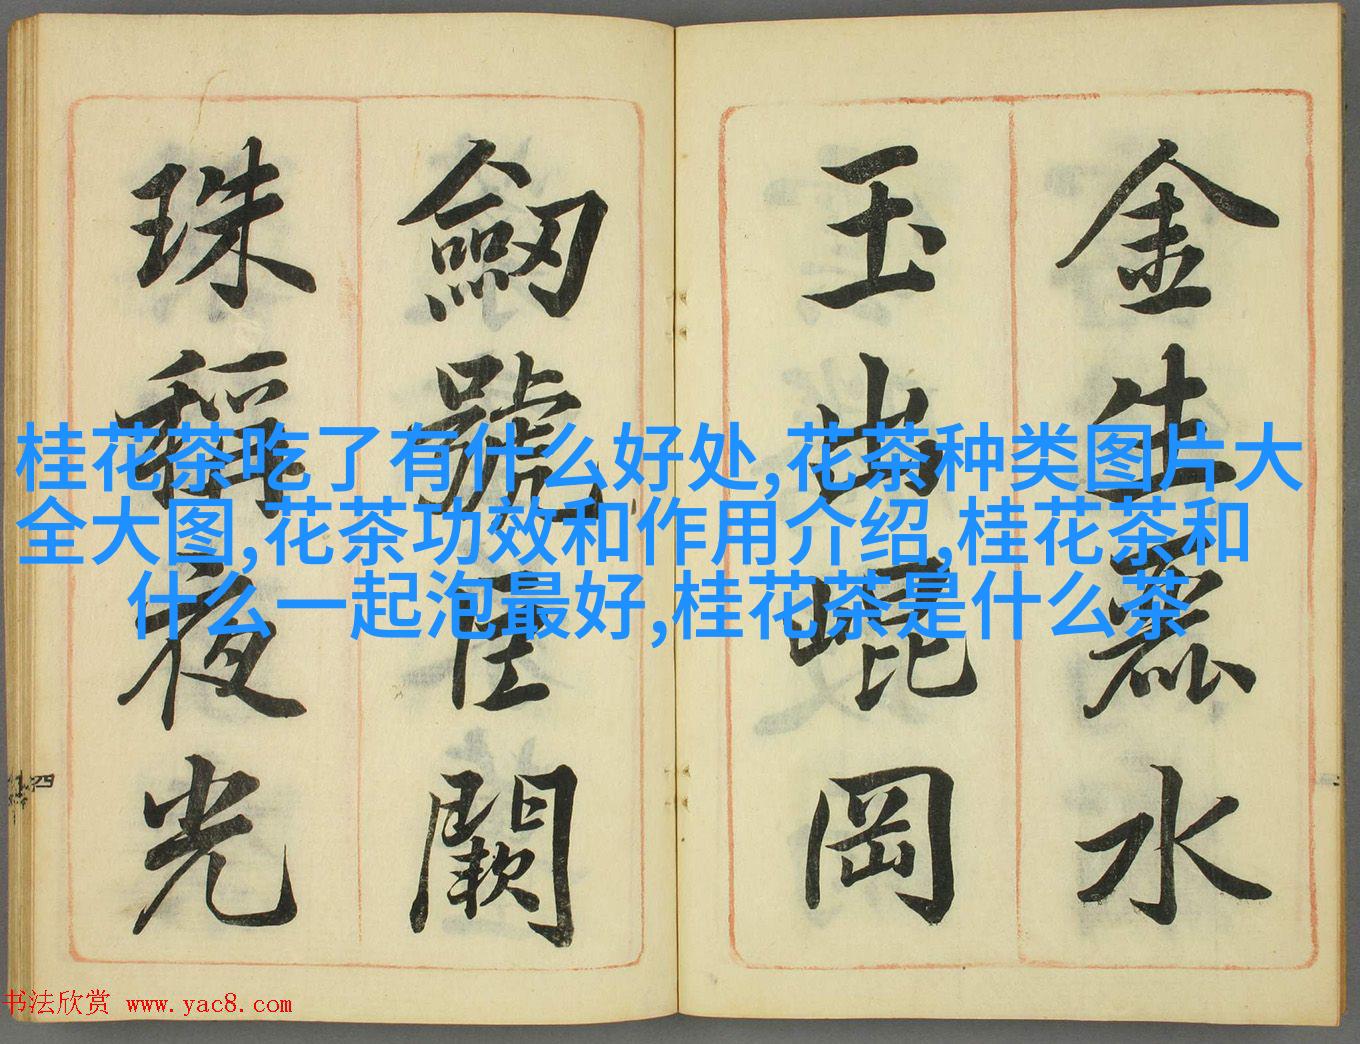 金生麗水
玉出崐岡
劒號巨闕
珠稱夜光
桂花茶吃了有什么好处,花茶种类图片大
全大图,花茶功效和作用介绍,桂花茶和
什么一起泡最好,桂花茶是什么茶
四
书法欣赏 www.yac8.com